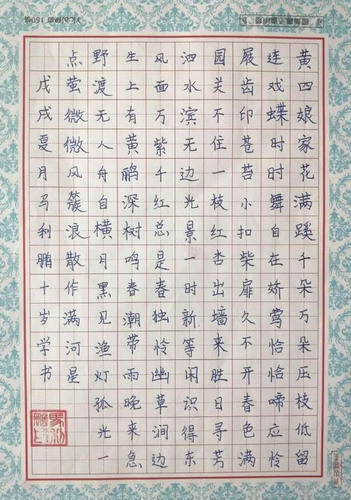 黄四娘家花满蹊千朵万朵压枝低留
连戏蝶时时舞自在娇莺恰恰啼应怜
屐齿印苍苔小扣柴扉久不开春色满
园关不住一枝红杏出墙来胜日寻芳
泗水滨无边光景一时新等闲识得东
风面万紫千红总是春独怜幽草涧边
生上有黄鹂深树鸣春潮带雨晚来急
野渡无人舟自横月黑见渔灯孤光一
点萤微微风簇浪散作满河星
戊戌夏月马利鹏十岁学书